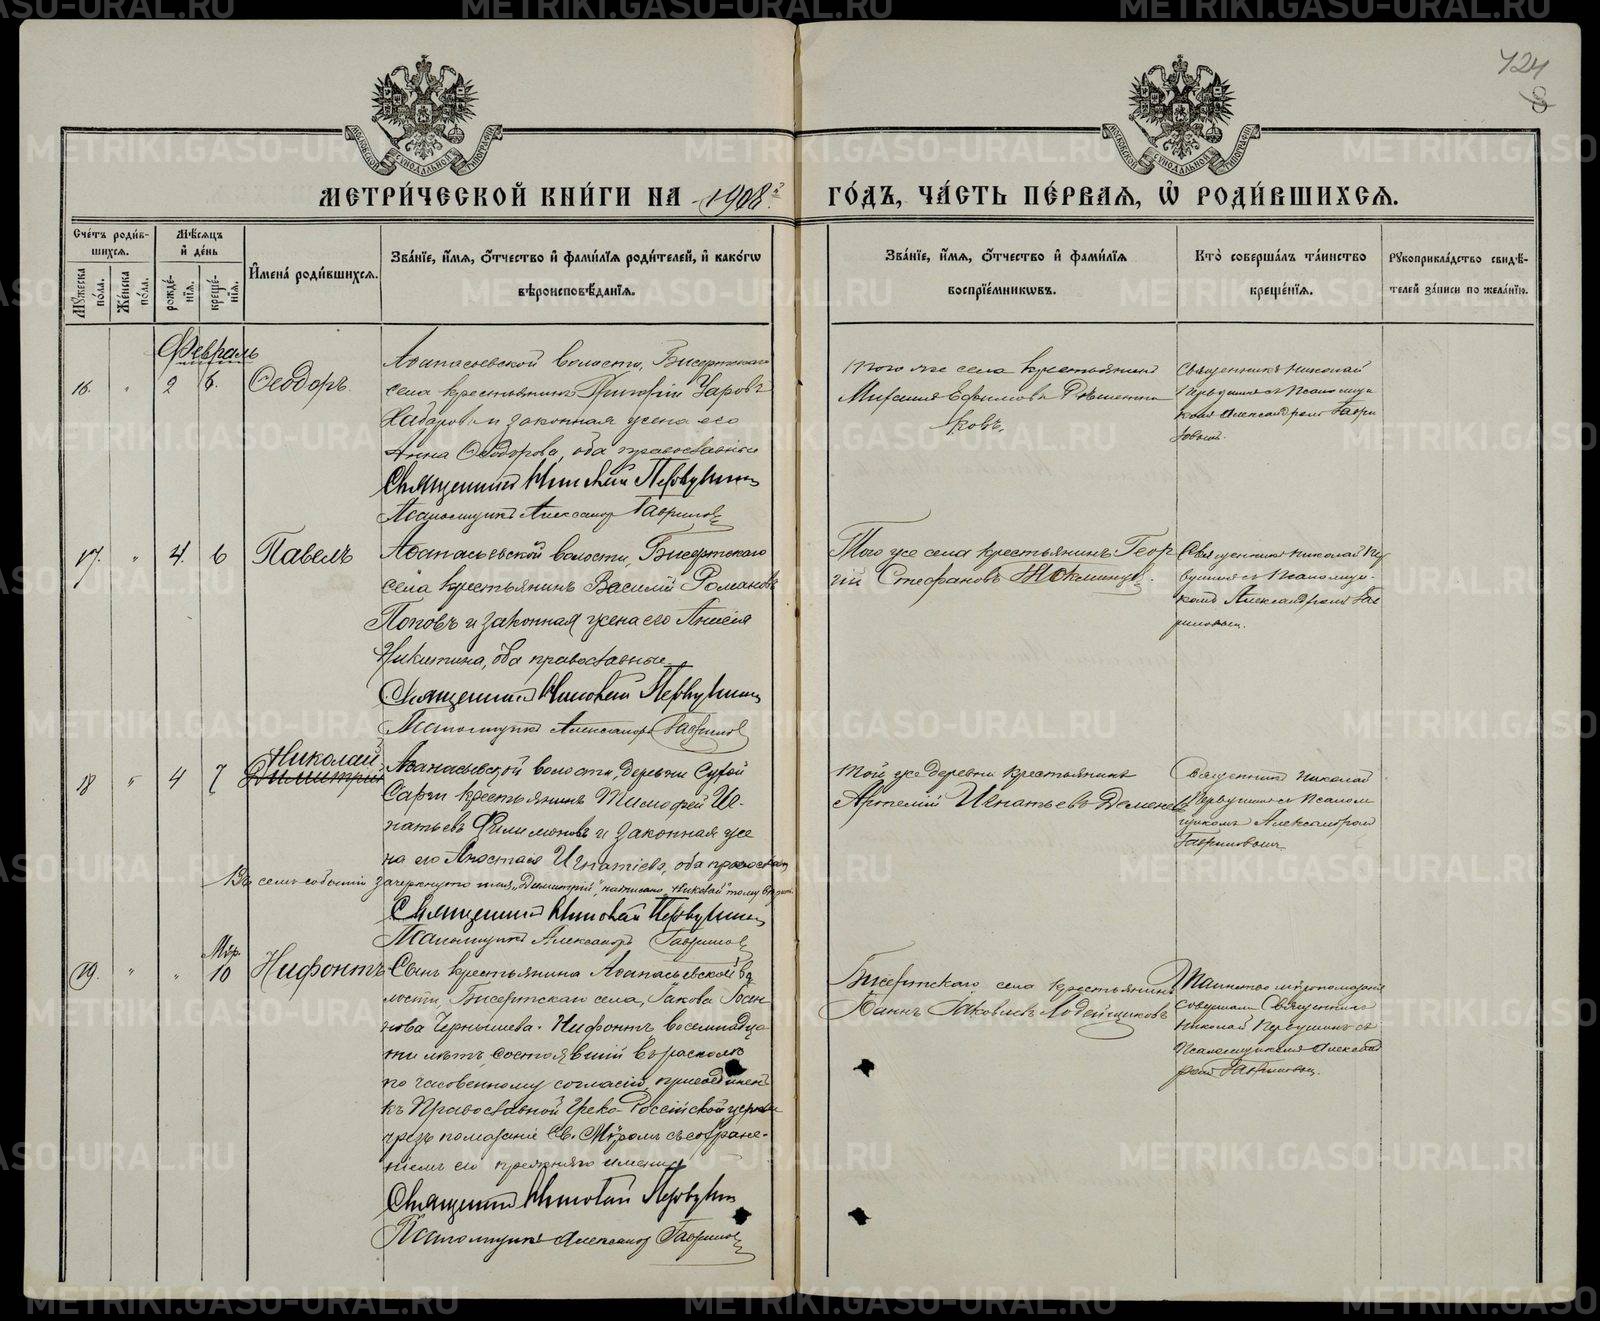 424
8
МЕТРИ́ЧЕСКОЙ КНИ́ГИ НА 1908 ГО́ДЪ, ЧА́СТЬ ПЕ́РВАЯ, Ѡ҆ РОДИ́ВШИХСЯ.
Сче́тъ роди́вшихся.
Му́жеска по́ла.
Же́нска по́ла.
Мѣ́сяцъ и҆ де́нь
рожде́нїя.
креще́нїя.
И҆мена̀ роди́вшихся.
Зва́нїе, и҆́мя, ѻ҆́тчество и҆ фами́лїя роди́телей, и҆ како́гѡ
вѣроисповѣ́данїя.
Зва́нїе, и҆́мя, ѻ҆́тчество и҆ фами́лїя
воспрїе́мникѡвъ.
Кто̀ соверша́лъ та́инство
креще́нїя.
Рꙋкоприкла́дство свидѣ́-
телей за́писи по жела́нїю.
Февраль
16. " 2 6. Ѳеодоръ
Аѳанасьевской волости, Бисертскаго
села крестьянинъ Григорій Уаровъ
и законная жена его
Анна Ѳеодорова, оба православные
Священникъ Николай Первушинъ
Псаломщикъ Александръ Гавриловъ
того же села крестьянинъ
Ефимовъ
ковъ.
Священникъ Николай
Первушинъ съ Псаломщи
комъ Александромъ Гаври
ловымъ.
17. " 4. 6 Павелъ
Аѳанасьевской волости, Бисертскаго
села крестьянинъ Василій Романовъ
Поповъ и законная жена его Анисія
Никитина, оба православные.
Священникъ Николай Первушинъ
Псаломщикъ Александръ Гавриловъ
Того же села крестьянинъ Геор
гій Стефановъ
Священникъ Николай Пер
вушинъ съ Псаломщи-
комъ Александромъ Гав
риловымъ.
18 " 4 7 Николай
Димитрій
Аѳанасьевской волости, деревни Сухой
Сарги крестьянинъ Тимофей Иг-
натьевъ Филимоновъ и законная же
на его Анастасія Игнатіева, оба православн
Въ семъ событіи зачеркнуто имя „Димитрій", написано „Николай" тому вѣрить.
Священникъ Николай Первушинъ
Псаломщикъ Александръ Гавриловъ
той же деревни крестьянинъ
Артемій Игнатьевъ Деменевъ
Священникъ Николай
Первушинъ съ Псалом
щикомъ Александромъ
Гавриловымъ
19. " " Мѵр. 10 Нифонтъ
Сынъ крестьянина Аѳанасьевской во
лости, Бисертскаго села, Іакова
нова Чернышева. Нифонтъ восемнадца
ти лѣтъ, состоявшій въ расколѣ
по часовенному согласію, присоединенъ
къ Православной Греко-Россійской церкви
чрезъ помазаніе Св. Мѵромъ съ сохране-
ніемъ его прежняго имени
Священникъ Николай Первушинъ
Псаломщикъ Александръ Гавриловъ
Бисертскаго села крестьянинъ
Іоаннъ Іаковлевъ Лодейщиковъ
Таинство мѵропомазанія
совершалъ Священникъ
Николай Первушинъ съ
Псаломщикомъ Александ
ромъ Гавриловымъ.
METRIKI.GASO-URAL.RU